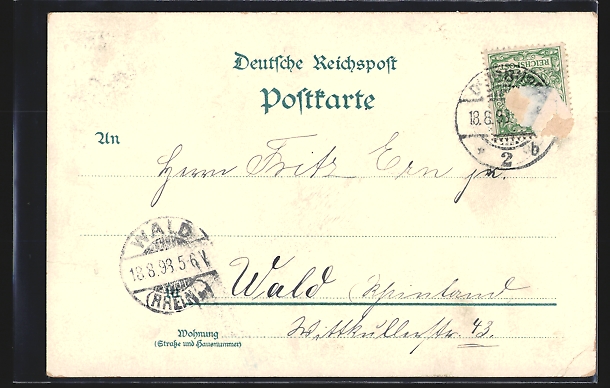 Deutsche Reichspost
Postkarte
REICHSPOST
18.8.98
2 b
An
Herrn Fritz Ern jr.
WALD
18.8.98 5-6 V
(RHEINL)
Wald Rheinland
Wohnung
(Straße und Hausnummer)
Wittkullerstr. 43.